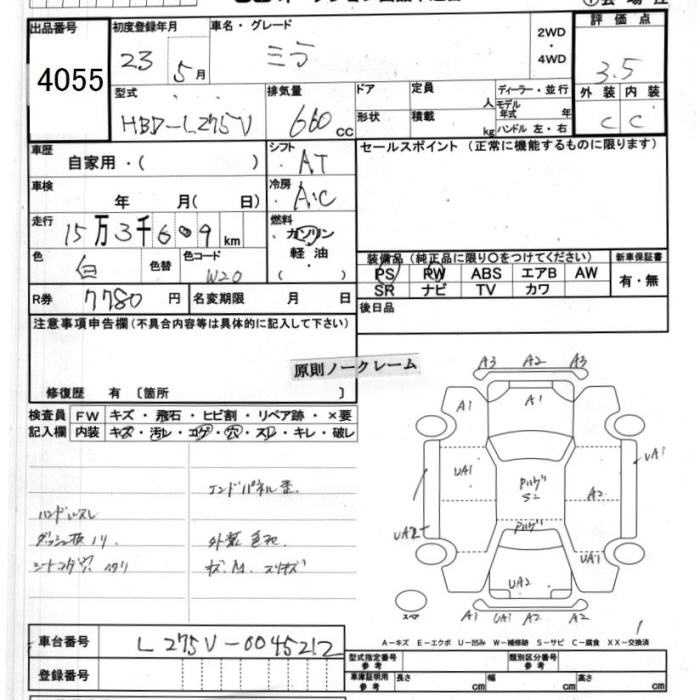 出品番号
4055
初度登録年月
23 年 5 月
車名・グレード
ミラ
2WD
・
4WD
評価点
3.5
外装 内装
C C
型式
HBD-L275V
排気量
660 CC
ドア
形状
定員 人
積載 kg
ディーラー・並行
モデル年式 年
ハンドル 左・右
車歴
自家用・( )
シフト
AT
セールスポイント (正常に機能するものに限ります)
車検
年 月( 日)
冷房
A・C
走行
15万3千609 km
燃料
ガソリン
軽油
( )
色
白
色替
色コード
W20
装備品 (純正品に限り〇をつけてください)
PS PW ABS エアB AW
SR ナビ TV カワ
新車保証書
有・無
R券 7780 円
名変期限 月 日
後日品
注意事項申告欄(不具合内容等は具体的に記入して下さい)
原則ノークレーム
修復歴 有 〔箇所 〕
検査員記入欄
FW キズ・飛石・ヒビ割・リペア跡・×要
内装 キズ・汚レ・コゲ・穴・スレ・キレ・破レ
エンドパネル歪
ハンドルスレ
ダッシュ板ノリ
外装色褪
シートコゲ穴
キズ、M、スリキズ
A3 A2 A3
A1 A1
UA1 UA1
S2
A2
UA2
UA1
UA2
A1 UA1 A2 A2
スペア
A-キズ E-エクボ U-凹み W-補修跡 S-サビ C-腐食 XX-交換済
車台番号
L275V-0045212
登録番号
型式指定番号
参考
類別区分番号
参考
車庫証明用
参考
長さ cm
幅 cm
高さ cm